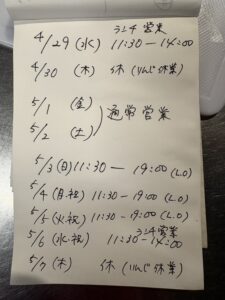 ランチ営業
4/29 (水) 11:30 — 14:00
4/30 (木) 休 (りんじ休業)
5/1 (金)
5/2 (土) } 通常営業
5/3 (日) 11:30 — 19:00 (L.O)
5/4 (月・祝) 11:30 - 19:00 (L.O)
5/5 (火・祝) 11:30 - 19:00 (L.O)
ランチ営業
5/6 (水・祝) 11:30 - 14:00
5/7 (木) 休 (りんじ休業)